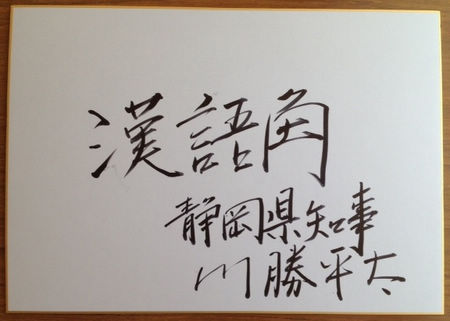 漢語角
静岡県知事
川勝平太